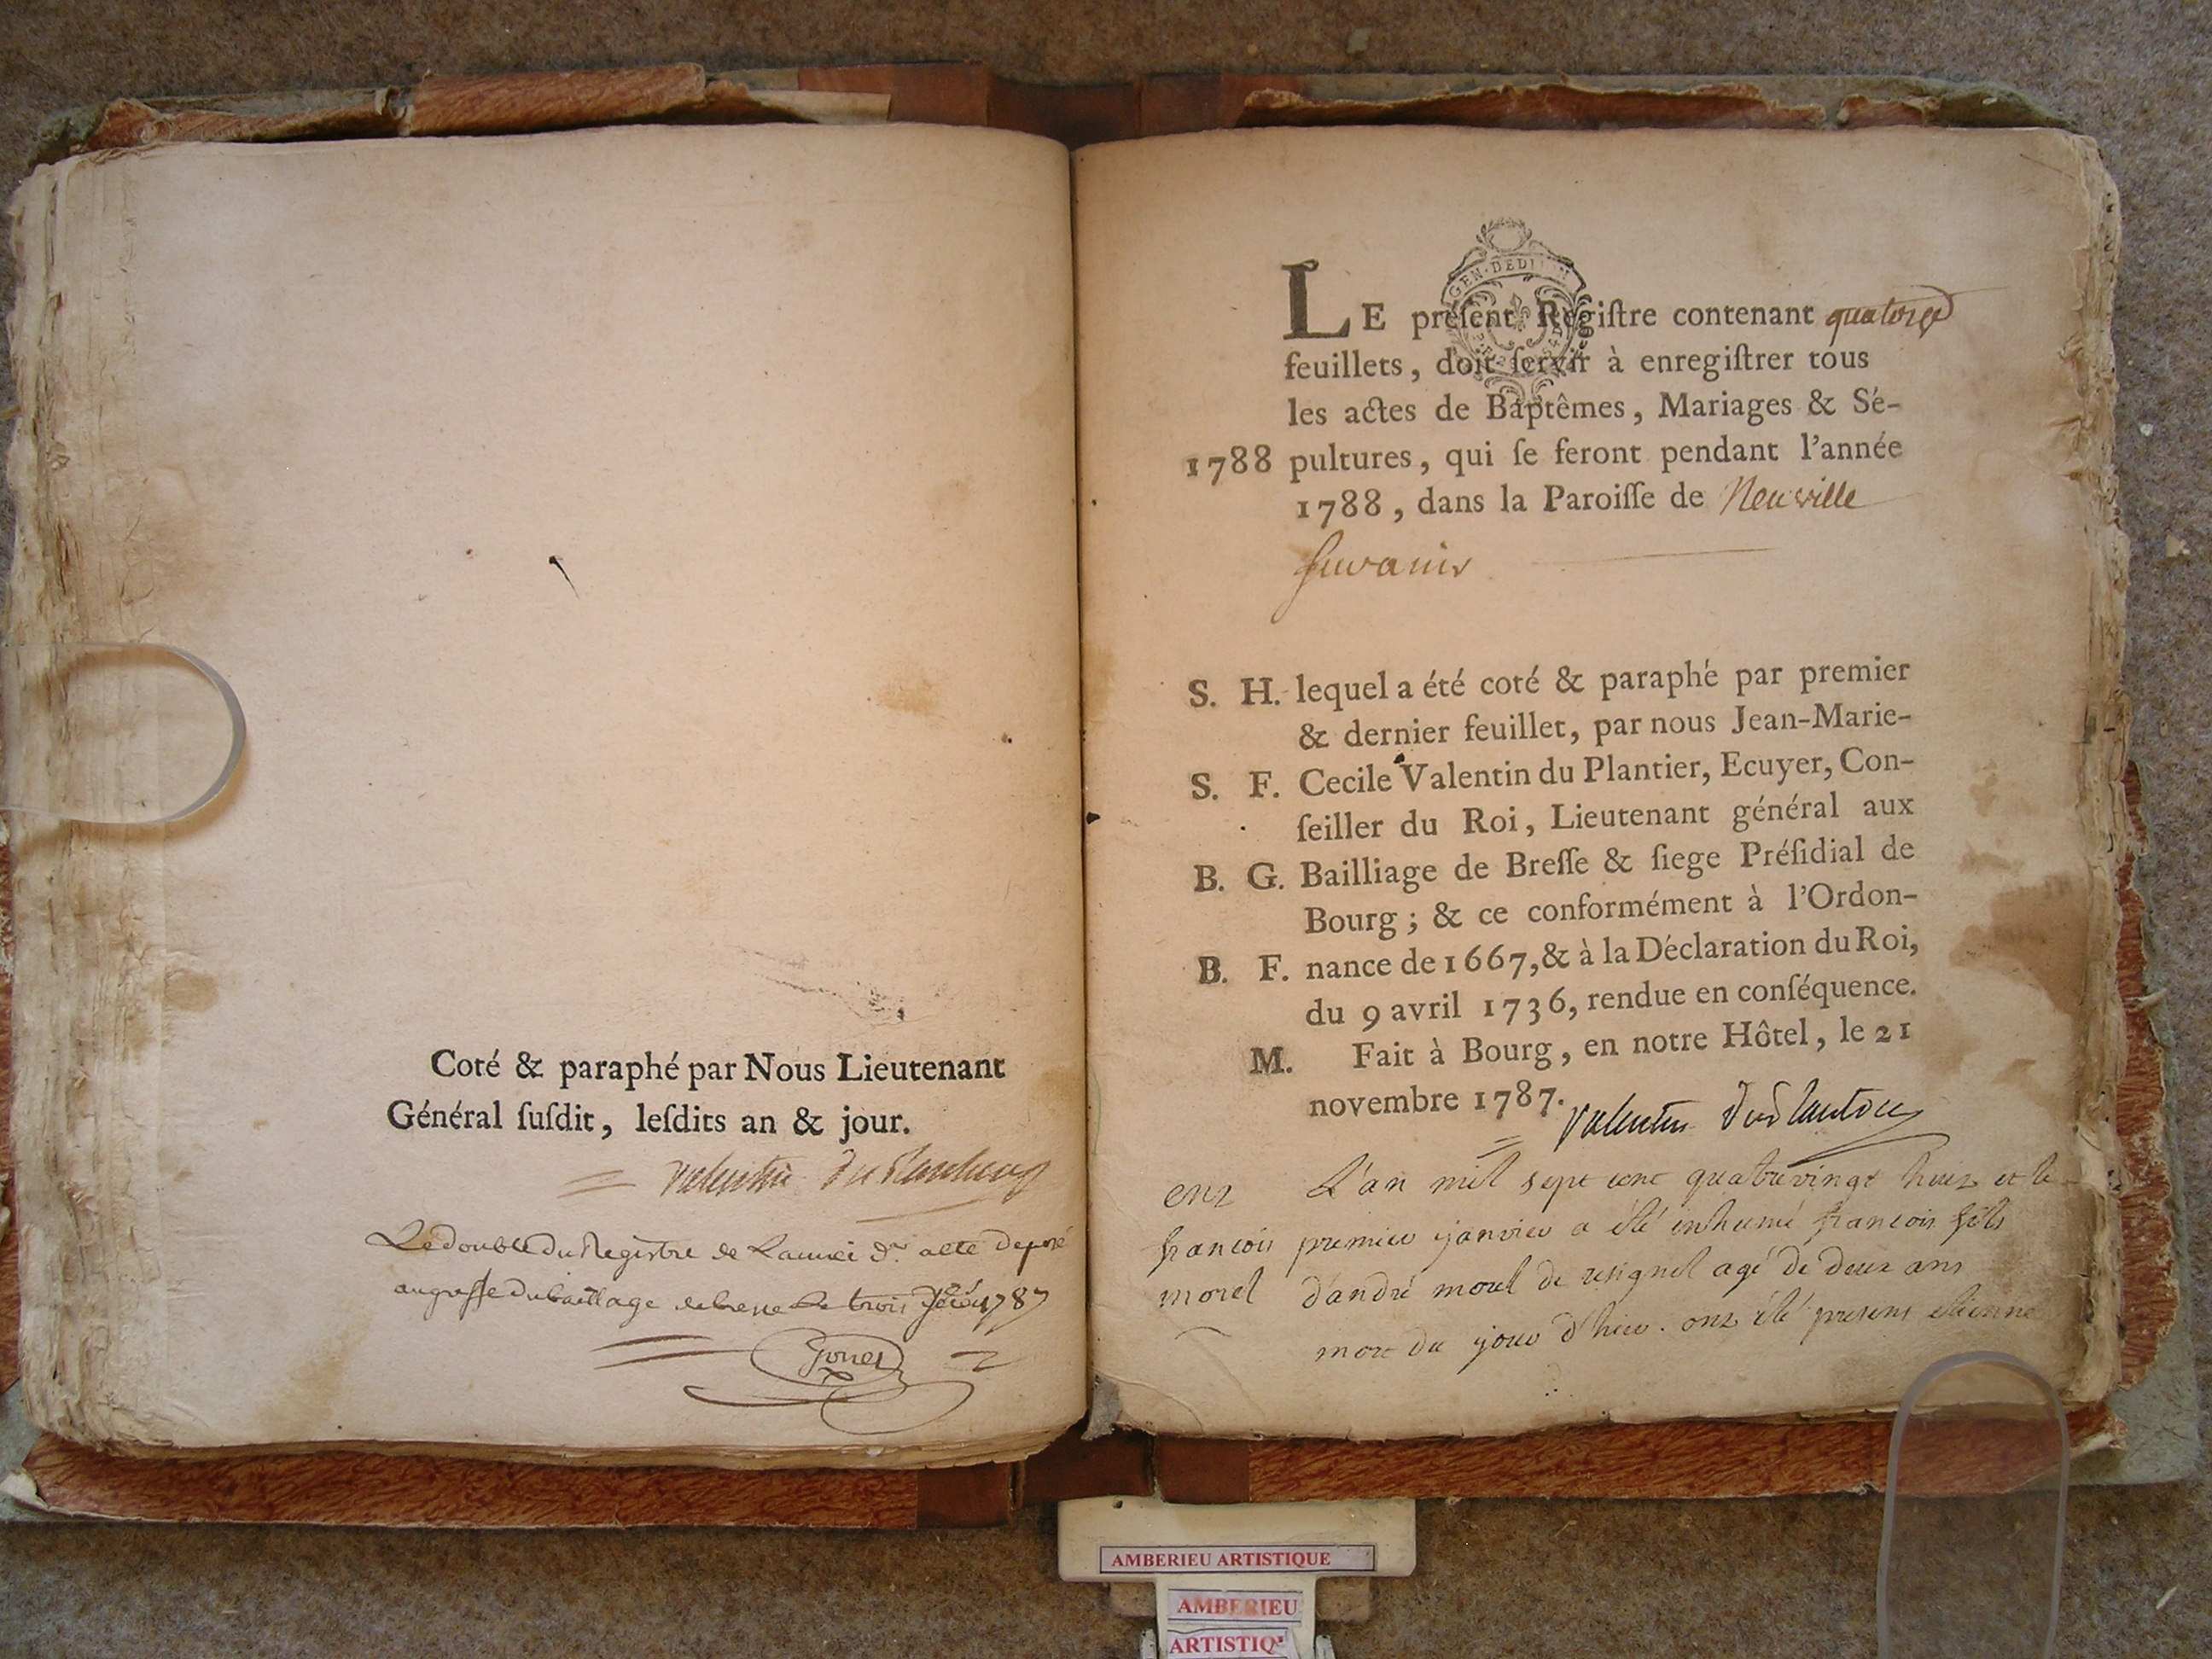 Coté & paraphé par Nous Lieutenant
Général ſuſdit, leſdits an & jour.
Valentin du Plantier
Le double du Registre de L'année d. acte deposé
au greffe du bailliage de bresse Le trois 1787
LE préſent Regiſtre contenant quatorze
GEN·DED
feuillets, doit ſervir à enregiſtrer tous
les actes de Baptêmes, Mariages & Sé-
1788 pultures, qui ſe feront pendant l'année
1788, dans la Paroiſſe de Neuville
S. H. lequel a été coté & paraphé par premier
& dernier feuillet, par nous Jean-Marie-
S. F. Cecile Valentin du Plantier, Ecuyer, Con-
ſeiller du Roi, Lieutenant général aux
B. G. Bailliage de Breſſe & ſiege Préſidial de
Bourg; & ce conformément à l'Ordon-
B. F. nance de 1667, & à la Déclaration du Roi,
du 9 avril 1736, rendue en conſéquence.
M. Fait à Bourg, en notre Hôtel, le 21
novembre 1787. Valentin du Plantier
L'an mil sept cent quatrevingt huit et le
francois premier janvier a été inhumé francois fils
morel d'andré morel de agé de deux ans
mort du jour d'hier. ont été presens etienne
AMBERIEU ARTISTIQUE
AMBERIEU
ARTISTIQ